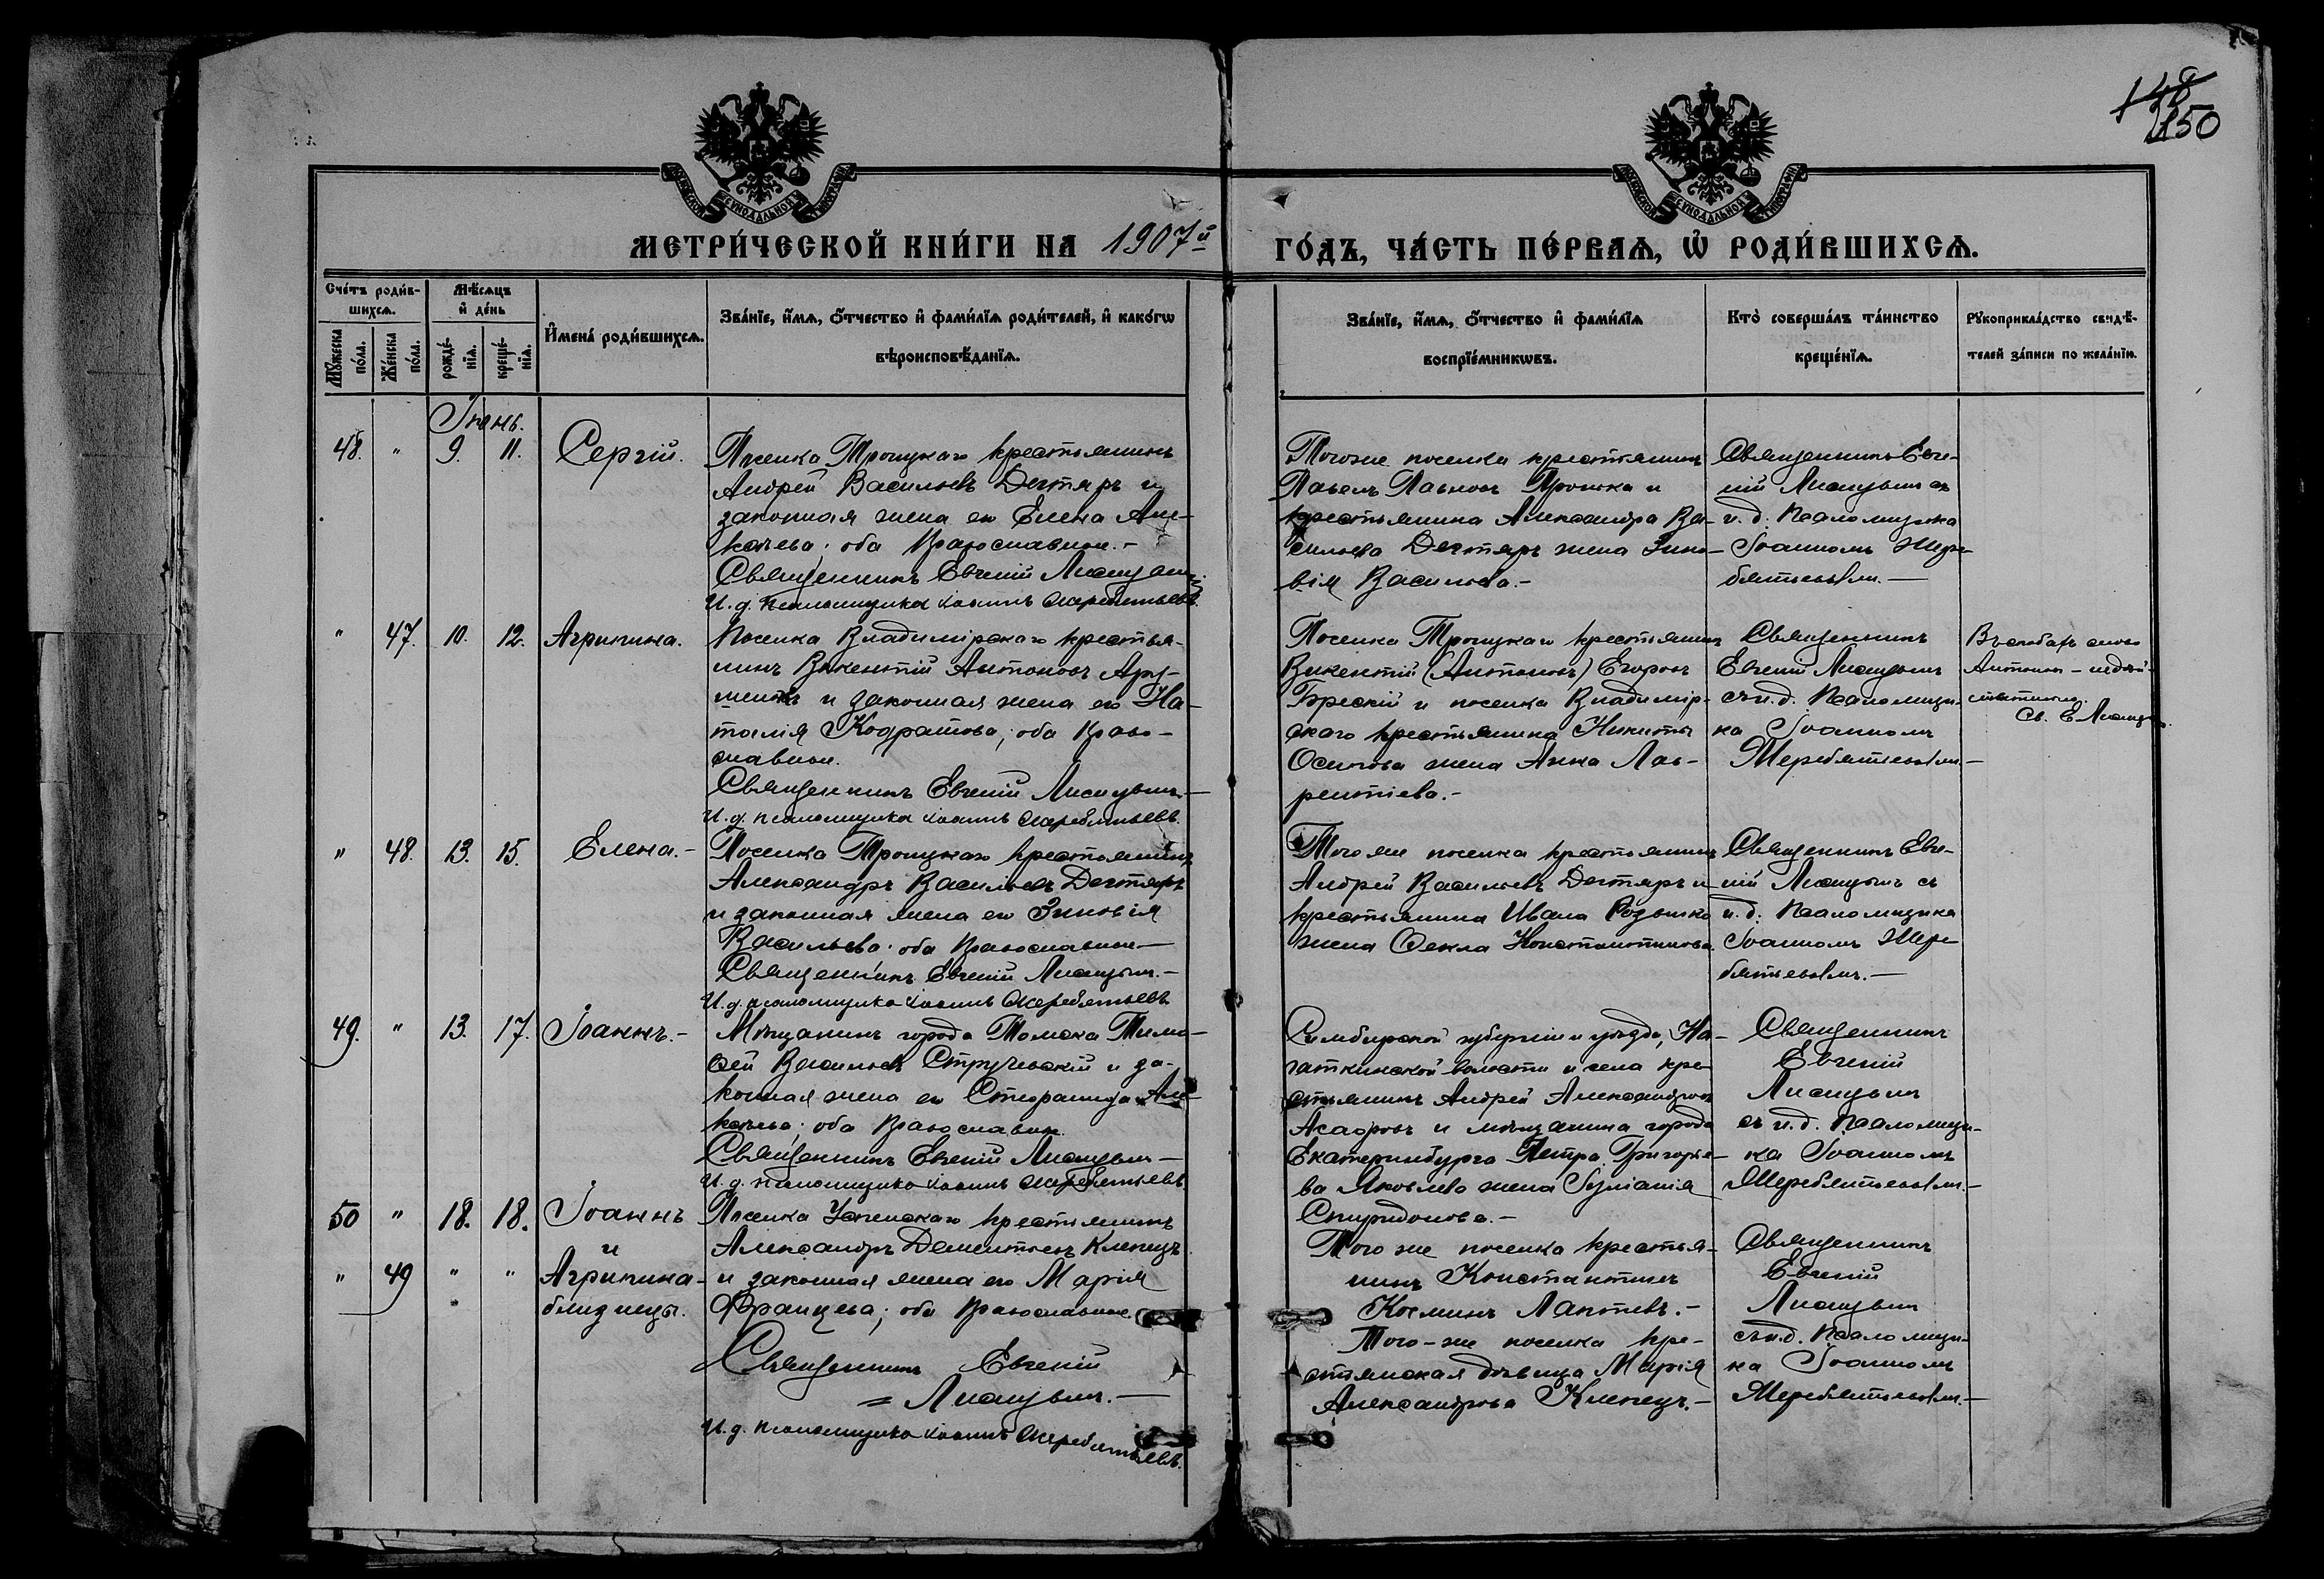 148
150
МЕТРИ́ЧЕСКОЙ КНИ́ГИ НА 1907й ГО́ДЪ, ЧА́СТЬ ПЕ́РВАѦ, Ѡ҆ РОДИ́ВШИХСѦ.
Сче́тъ роди́вшихсѧ.
Мꙋ́жеска по́ла.
Же́нска по́ла.
Мѣ́сѧцъ и҆ де́нь
рожде́нїѧ.
креще́нїѧ.
И҆мена̀ роди́вшихсѧ.
Зва́нїе, и҆́мѧ, ѻ҆́тчество и҆ фами́лїѧ роди́телей, и҆ како́гѡ
вѣроисповѣ́данїѧ.
Зва́нїе, и҆́мѧ, ѻ҆́тчество и҆ фами́лїѧ
воспрїе́мникѡвъ.
Кто̀ соверша́лъ та́инство
креще́нїѧ.
Рꙋкоприкла́дство свидѣ́-
телей за́писи по жела́нїю.
Іюнь.
48. " 9. 11. Сергій.
Поселка Троицкаго крестьянинъ
Андрей Васильевъ Дегтярь и
законная жена его Елена Але-
ксѣева; оба православные.-
Священникъ Евгеній Лисицынъ.
И. д. псаломщика Іоаннъ Жеребятьевъ.
Тогоже поселка крестьянинъ
Павелъ Павловъ и
крестьянина Александра Ва-
сильева Дегтярь жена Зино-
вія Васильева.-
Священникъ Евге-
ній Лисицынъ съ
и. д. псаломщика
Іоанномъ Жере-
бятьевымъ.-
" 47. 10. 12. Агрипина.
Поселка Владимірскаго крестья-
нинъ Викентій Антоновъ
и законная жена его На-
талія Кодратова; оба право-
славные.
Священникъ Евгеній Лисицынъ.-
И. д. псаломщика Іоаннъ Жеребятьевъ.
Поселка Троицкаго крестьянинъ
Викентій (Антоновъ) Егоровъ
Брескій и поселка Владимір-
скаго крестьянина Никиты
Осипова жена Анна Лав-
рентіева.-
Священникъ
Евгеній Лисицынъ
съ и. д. псаломщи-
ка Іоанномъ
Жеребятьевымъ.-
Въ скобахъ слово
Антоновъ - недѣй-
ствительно.
Св. Е. Лисицынъ.
" 48. 13. 15. Елена.-
Поселка Троицкаго крестьянинъ
Александръ Васильевъ Дегтярь
и законная жена его Зиновія
Васильева; оба православные.-
Священникъ Евгеній Лисицынъ.-
И. д. псаломщика Іоаннъ Жеребятьевъ.
Того же поселка крестьянинъ
Андрей Васильевъ Дегтярь и
крестьянина Ивана
жена Ѳекла Константинова
Священникъ Евге-
ній Лисицынъ съ
и. д. псаломщика
Іоанномъ Жере-
бятьевымъ.-
49. " 13. 17. Іоаннъ.-
Мѣщанинъ города Томска Тимо-
ѳей Васильевъ Стручевскій и за-
конная жена его Стефанида Але-
ксѣева; оба православные.
Священникъ Евгеній Лисицынъ-
И. д. псаломщика Іоаннъ Жеребятьевъ.
Симбирской губерніи и уѣзда, На-
гаткинской волости и села кре-
стьянинъ Андрей Александровъ
и мѣщанина города
Екатеринбурга Петра Григорье-
ва Яковлева жена Іуліанія
Спиридонова.-
Священникъ
Евгеній
Лисицынъ
съ и. д. псаломщи-
ка Іоанномъ
Жеребятьевымъ.-
50 " 18. 18. Іоаннъ
и
" 49 " " Агрипина-
близнецы.
Поселка Успенскаго крестьянинъ
Александръ Дементьевъ Клепецъ
и законная жена его Марія
Францева; оба православные.
Священникъ Евгеній
= Лисицынъ.-
И. д. псаломщика Іоаннъ Жеребятьевъ.
Того же поселка крестья-
нинъ Константинъ
Косминъ Лаптевъ.-
Того-же поселка кре-
стьянская дѣвица Марія
Александрова Клепецъ.-
Священникъ
Евгеній
Лисицынъ
съ и. д. псаломщи-
ка Іоанномъ
Жеребятьевымъ.-